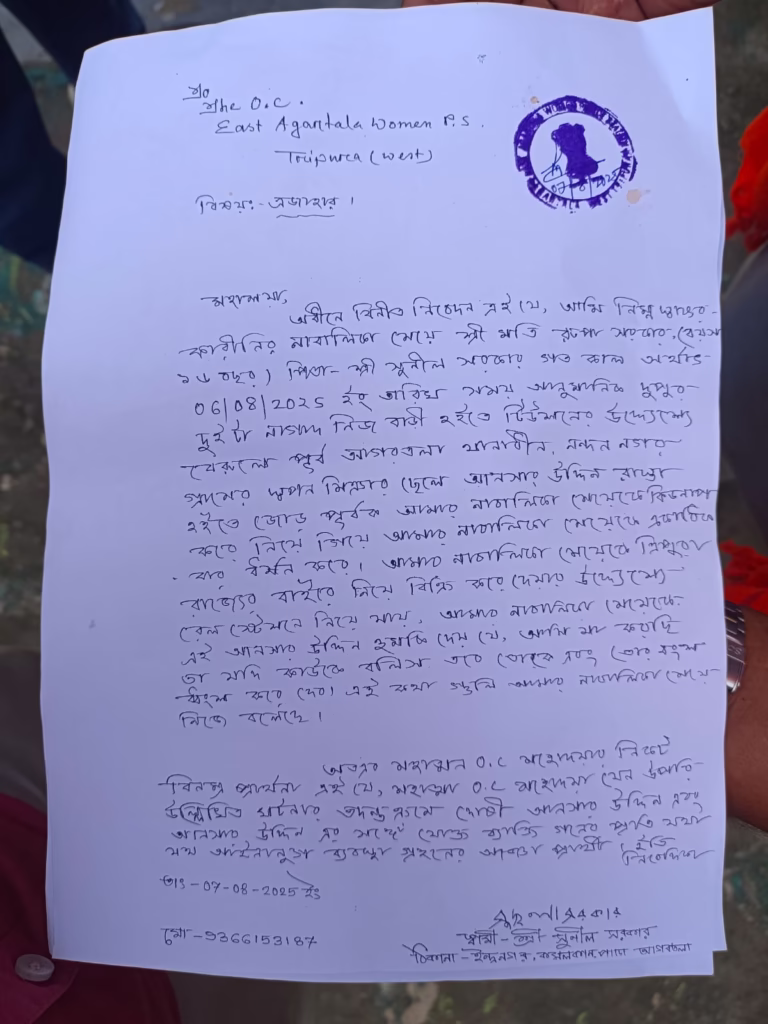 To
The O.C.
East Agartala Women P.S.
Tripura (West)
07-8/2025
বিষয়:- এজাহার।
মহাশয়া,
অধীনে বিনীত নিবেদন এই যে, আমি নিম্ন স্বাক্ষর-
কারীনির নাবালিকা মেয়ে শ্রী মতি রুপা সরকার, (বয়স
১৬ বছর) পিতা- শ্রী সুনীল সরকার গত কাল অর্থাৎ
06/08/2025 ইং তারিখ সময় আনুমানিক দুপুর
দুইটা নাগাদ নিজ বাড়ী হইতে টিউশনের উদ্দ্যেশ্যে
বেরুলে পূর্ব আগরতলা থানাধীন, নন্দন নগর
গ্রামের স্বপন মিঞার ছেলে আনসার উদ্দিন রাস্তা
হইতে জোড় পূর্বক আমার নাবালিকা মেয়েকে কিডন্যাপ
করে নিয়ে গিয়ে আমার নাবালিকা মেয়েকে একাধিক
বার ধর্ষন করে। আমার নাবালিকা মেয়েকে ত্রিপুরা
রাজ্যের বাইরে নিয়ে বিক্রি করে দেয়ার উদ্দ্যেশ্যে
রেল স্টেশনে নিয়ে যায়, আমার নাবালিকা মেয়েকে
এই আনসার উদ্দিন হুমকি দেয় যে, আমি যা করছি
তা যদি কাউকে বলিস তবে তোকে এবং তোর বংশ
ধ্বংস করে দেব। এই কথা গুলি আমার নাবালিকা মেয়ে
নিজে বলেছে।
অতএব মহাশয়া O.C মহোদয়ার নিকট
বিনম্র প্রার্থনা এই যে, মহাশয়া O.C মহোদয়া যেন উপরি
উল্লিখিত ঘটনার তদন্ত ক্রমে দোষী আনসার উদ্দিন এবং
আনসার উদ্দিন এর সঙ্গে যোক্ত ব্যাক্তি গনের প্রতি যথা
যথ আইনানুগ ব্যবস্থা গ্রহনের আজ্ঞা প্রার্থী
ইতি
নিবেদিকা
তাং-07-08-2025 ইং
মো-9366153187
সরকার
স্বামী- শ্রী সুনীল সরকার
ঠিকানা - ইন্দ্রনগর, আগরতলা